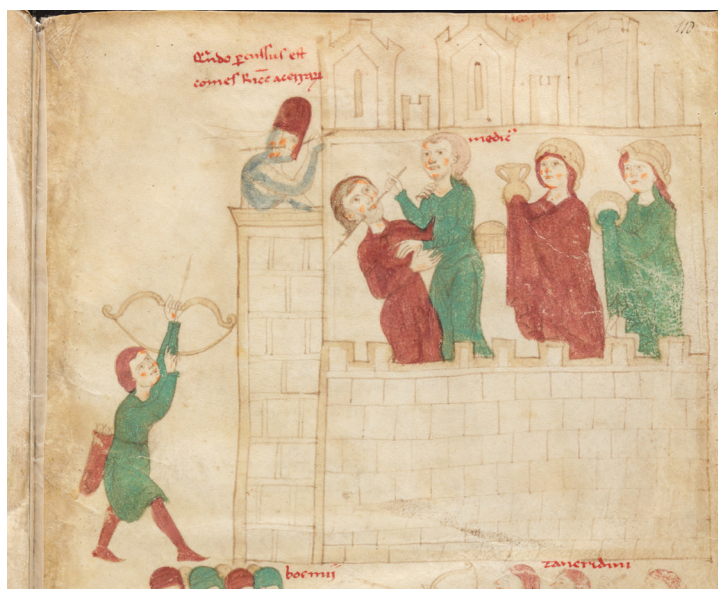 neapolis
110
Qñdo ꝑcussus est
comes Ricc̄ acerraꝝ
medicꝰ
boemii
tancridini